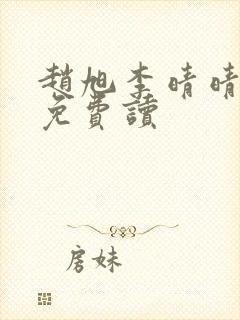 趙旭李晴晴
免費讀
房妹